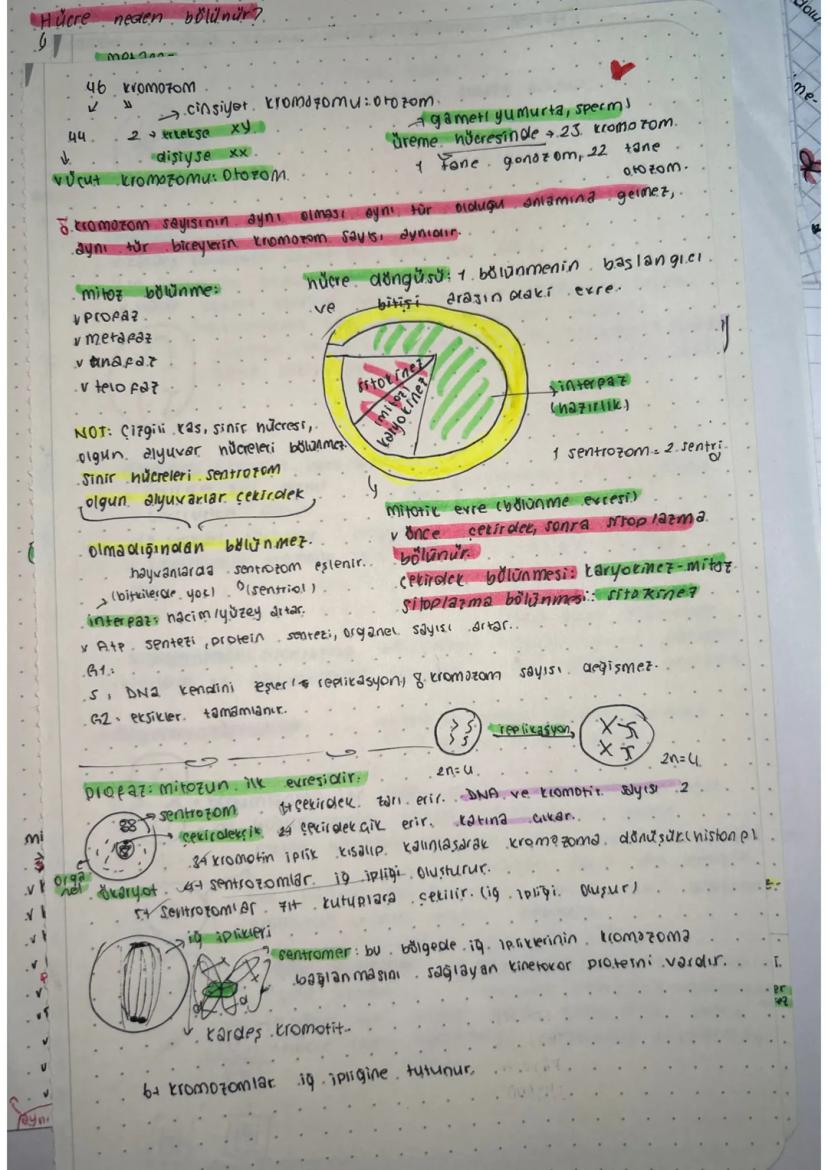 Hücre neden bölünür?
46 kromozom
→ cinsiyet kromozomu: otozom
44
2 → erkekse xy
dişiyse xx
vücut kromozomu: otozom
→ gamet (yumurta, sperm)
üreme hücresinde → 23 kromozom
1 tane gonozom, 22 tane
otozom.
ö. kromozom sayısının aynı olması aynı tür olduğu anlamına gelmez,
aynı tür bireylerin kromozom sayısı aynıdır.
mitoz bölünme:
v profaz
v metafaz
v anafaz
v telofaz
hücre döngüsü: 1. bölünmenin başlangıcı
ve bitişi arasındaki evre.
sitokinez
(mitoz)
karyokinez
interfaz
(hazırlık)
1 sentrozom = 2 sentriol
NOT: Çizgili kas, sinir hücresi,
olgun alyuvar hücreleri bölünmez.
sinir hücreleri sentrozom
olgun alyuvarlar çekirdek
olmadığından bölünmez.
mitotik evre (bölünme evresi)
v önce çekirdek, sonra sitoplazma
bölünür.
çekirdek bölünmesi: karyokinez-mitoz
sitoplazma bölünmesi: sitokinez
hayvanlarda sentrozom eşlenir.
→ (bitkilerde yok) (sentriol)
interfaz: hacim/yüzey artar.
v Atp sentezi, protein sentezi, organel sayısı artar.
G1:
S: DNA kendini eşler (replikasyon) kromozom sayısı değişmez.
G2: eksikler tamamlanır.
replikasyon
2n=4
2n=4
profaz: mitozun ilk evresidir.
→ sentrozom
→ çekirdekçik
organel
ökaryot
1→ çekirdek zarı erir. DNA ve kromotit sayısı 2
2→ çekirdekçik erir. katına çıkar.
3→ kromotin iplik kısalıp kalınlaşarak kromozoma dönüşür (histon p)
4→ sentrozomlar iğ ipliği oluşturur.
5→ sentrozomlar zıt kutuplara çekilir (iğ ipliği oluşur)
→ iğ iplikleri
sentromer: bu bölgede iğ ipliklerinin kromozoma
bağlanmasını sağlayan kinetokor proteini vardır.
kardeş kromotit
6→ kromozomlar iğ ipliğine tutunur.